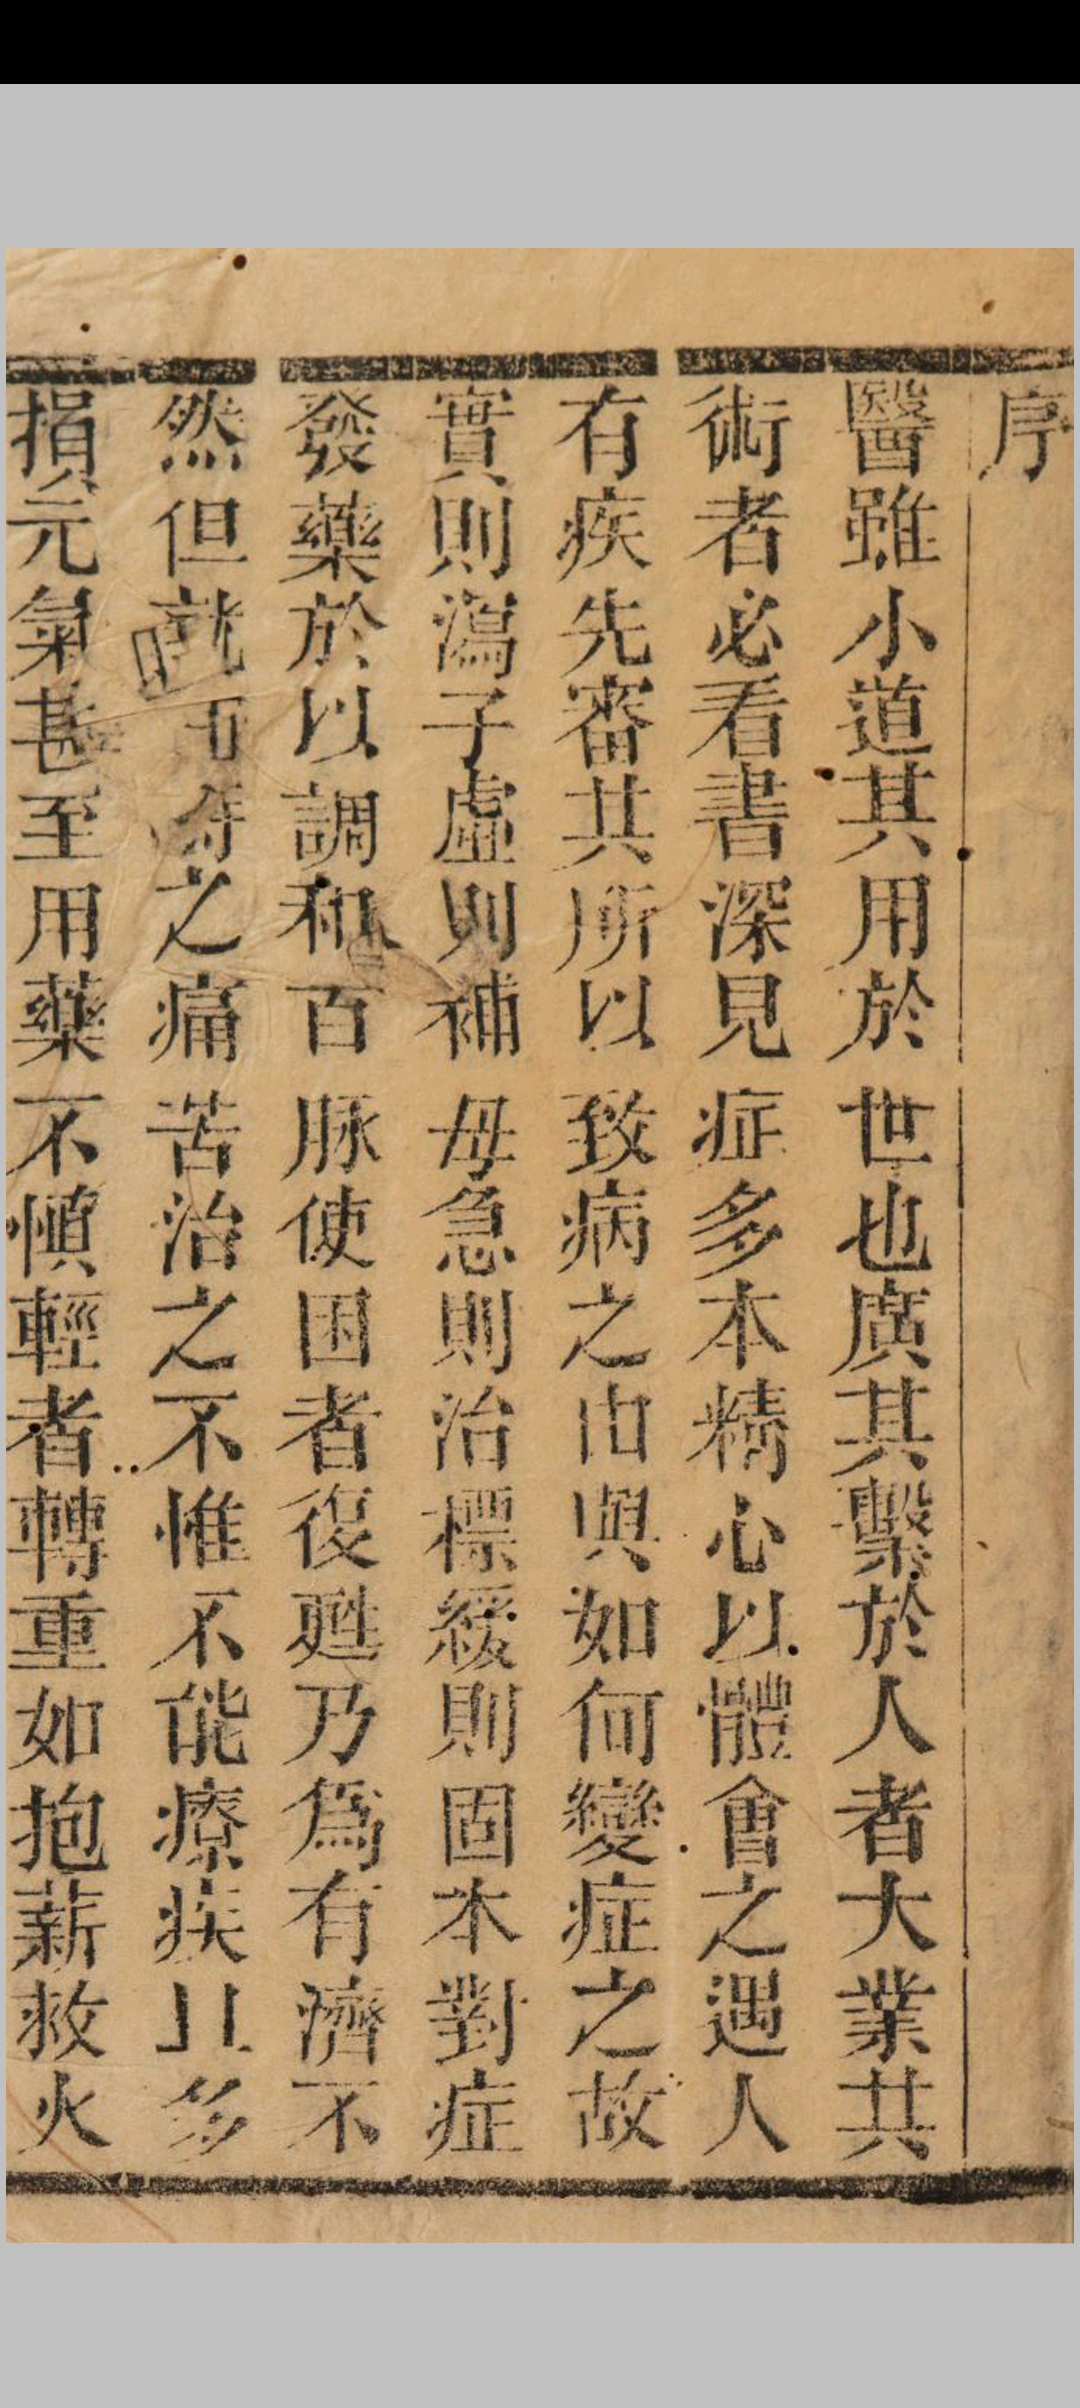 序
醫雖小道其用於世也廣其繫於人者大業共
術者必看書深見症多本精心以體會之遇人
有疾先審共所以致病之由與如何變症之故
實則瀉子虛則補母急則治標緩則固本對症
發藥於以調和百脉使困者復甦乃爲有濟不
然但就之痛苦治之不惟不能療疾且多
損元氣甚至用藥不慎輕者轉重如抱薪救火